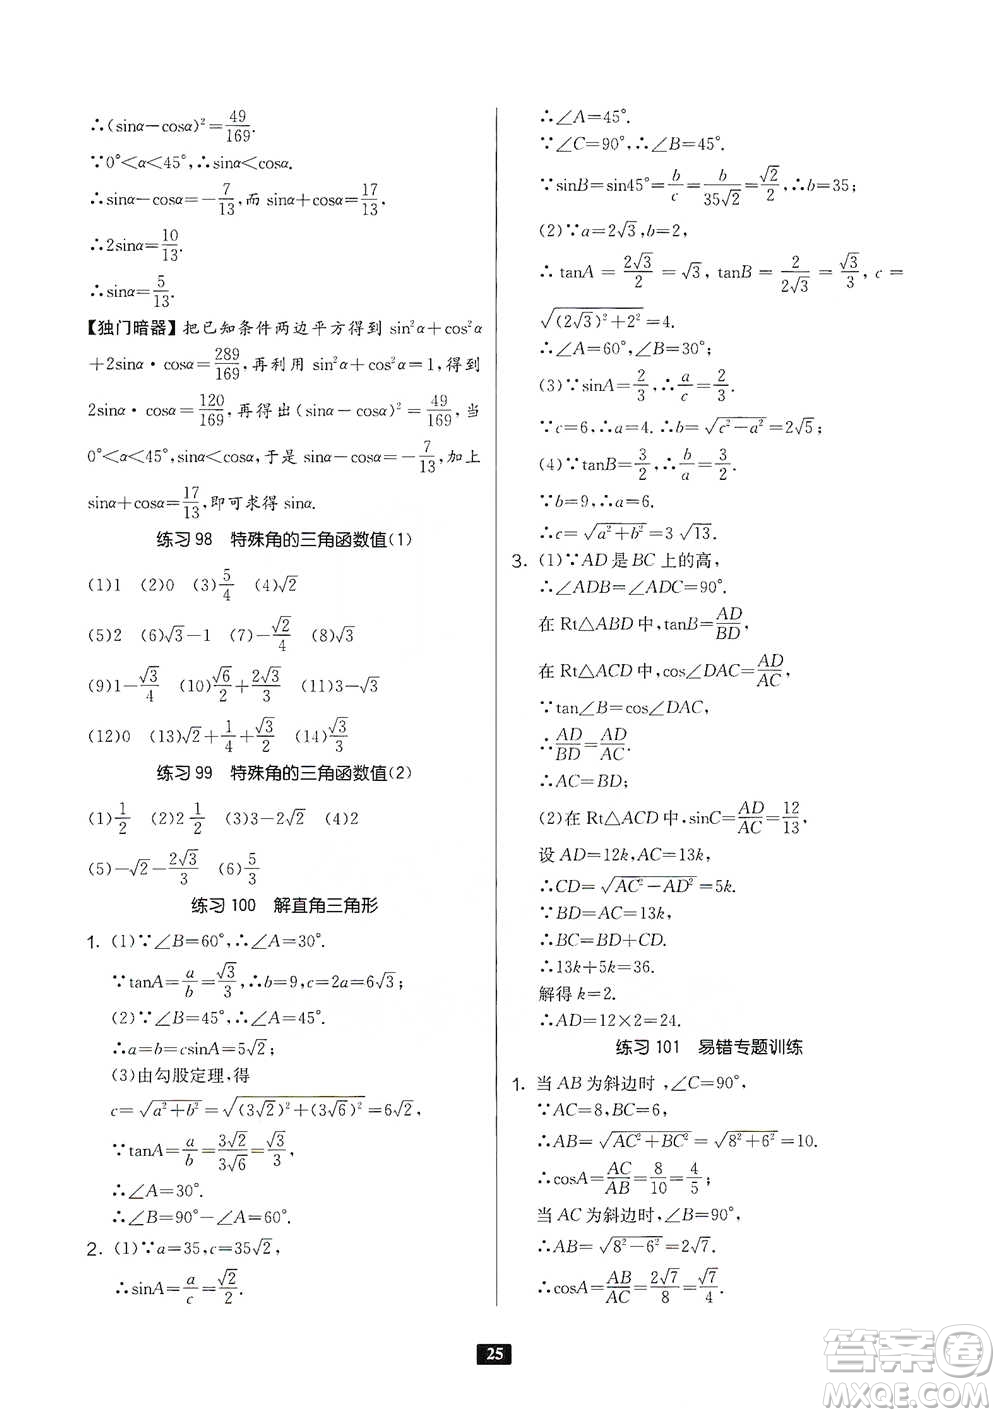 ∴(sinα−cosα)²=49/169.
∵0°<α<45°,∴sinα<cosα.
∴sinα−cosα=−7/13,而 sinα+cosα=17/13.
∴2sinα=10/13.
∴sinα=5/13.
【独门暗器】把已知条件两边平方得到 sin²α+cos²α
+2sinα·cosα=289/169,再利用 sin²α+cos²α=1,得到
2sinα·cosα=120/169,再得出(sinα−cosα)²=49/169,当
0°<α<45°,sinα<cosα,于是 sinα−cosα=−7/13,加上
sinα+cosα=17/13,即可求得 sinα.
练习98 特殊角的三角函数值(1)
(1)1 (2)0 (3)5/4 (4)√2
(5)2 (6)√3−1 (7)−√2/4 (8)√3
(9)1−√3/4 (10)√6/2+2√3/3 (11)3−√3
(12)0 (13)√2+1/4+√3/2 (14)√3
练习99 特殊角的三角函数值(2)
(1)1/2 (2)2√2 (3)3−2√2 (4)2
(5)−√2−2√3/3 (6)5/3
练习100 解直角三角形
1. (1)∵∠B=60°,∴∠A=30°.
∵tanA=a/b=√3/3,∴b=9,c=2a=6√3;
(2)∵∠B=45°,∴∠A=45°.
∴a=b=csinA=5√2;
(3)由勾股定理,得
c=√(a²+b²)=√((3√2)²+(3√6)²)=6√2,
∵tanA=a/b=3√2/3√6=√3/3,
∴∠A=30°.
∴∠B=90°−∠A=60°.
2. (1)∵a=35,c=35√2,
∴sinA=a/c=√2/2.
∴∠A=45°.
∵∠C=90°,∴∠B=45°.
∵sinB=sin45°=b/c=b/35√2=√2/2,∴b=35;
(2)∵a=2√3,b=2,
∴tanA=2√3/2=√3,tanB=2/2√3=√3/3,c=
√((2√3)²+2²)=4.
∴∠A=60°,∠B=30°;
(3)∵sinA=2/3,∴a/c=2/3.
∵c=6,∴a=4.∴b=√(c²−a²)=2√5;
(4)∵tanB=3/2,∴b/a=3/2.
∵b=9,∴a=6.
∴c=√(a²+b²)=3√13.
3. (1)∵AD是BC上的高,
∴∠ADB=∠ADC=90°.
在 Rt△ABD中,tanB=AD/BD,
在 Rt△ACD中,cos∠DAC=AD/AC,
∵tan∠B=cos∠DAC,
∴AD/BD=AD/AC.
∴AC=BD;
(2)在 Rt△ACD中,sinC=AD/AC=12/13,
设 AD=12k,AC=13k,
∴CD=√(AC²−AD²)=5k.
∵BD=AC=13k,
∴BC=BD+CD.
∴13k+5k=36.
解得 k=2.
∴AD=12×2=24.
练习101 易错专题训练
1. 当 AB 为斜边时,∠C=90°,
∵AC=8,BC=6,
∴AB=√(AC²+BC²)=√(8²+6²)=10.
∴cosA=AC/AB=8/10=4/5;
当 AC 为斜边时,∠B=90°,
∴AB=√(8²−6²)=2√7,
∴cosA=AB/AC=2√7/8=√7/4.
25
答案圈
MXQE.COM